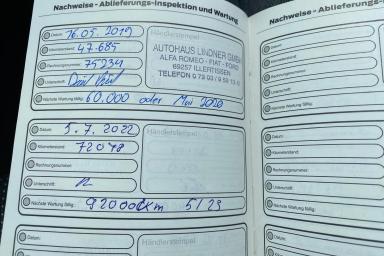 Nachweise - Ablieferungs-Inspektion und Wartung
Nachweise - Ablieferungs-
Datum: 16.05.2019
Kilometerstand: 47.685
Rechnungsnummer: 75234
Unterschrift:
Nächste Wartung fällig: 60.000 oder Mai 2020
AUTOHAUS LINDNER GMBH
ALFA ROMEO - FIAT - FORD
89257 ILLERTISSEN
TELEFON 0 73 03 / 9 59 13-0
Datum: 5.7.2022
Händlerstempel
Kilometerstand: 72048
Rechnungsnummer:
Unterschrift:
Nächste Wartung fällig: 92000km 5/23
Datum:
Händlerstempel
Kilometerstand:
Datum:
Kilometerstand:
Rechnungsnummer:
Unterschrift:
Nächste Wartung fällig:
Datum:
Kilometerstand:
Rechnungsnummer:
Unterschrift:
Nächste Wartung fällig:
Datum: